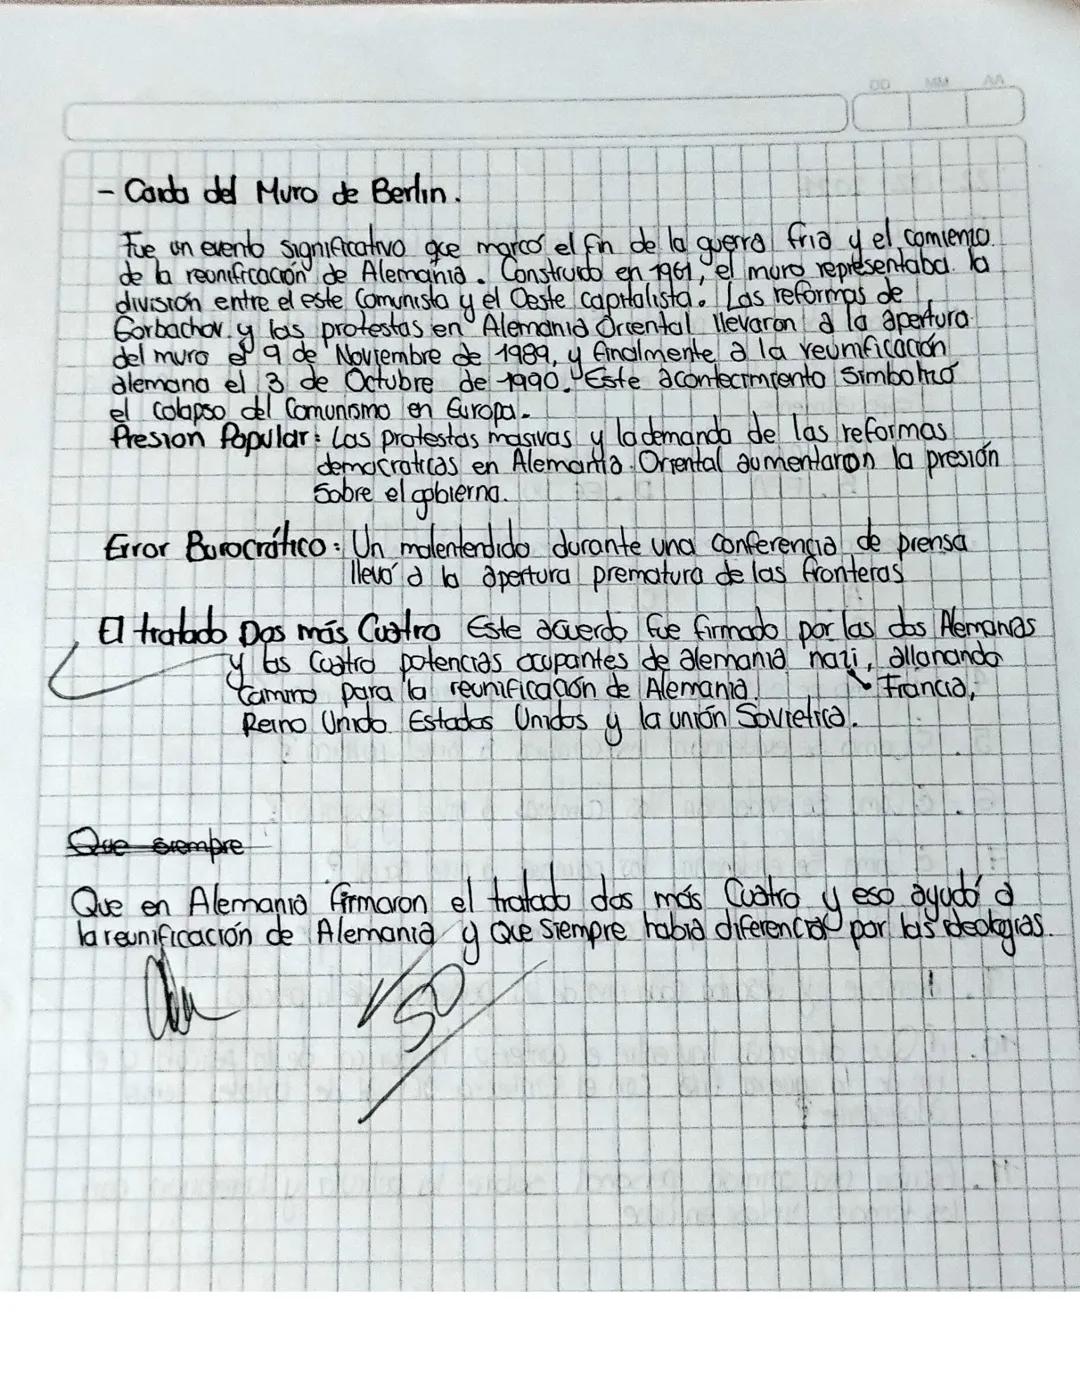 DD MM AA
- Caida del Muro de Berlin.
Fue un evento significativo que marcó el fin de la guerra fria y el comienzo
de la reunificación de Alemania. Construido en 1961, el muro representaba la
división entre el este Comunista y el Oeste capitalista. Las reformas de
Gorbachov y las protestas en Alemania Oriental llevaron a la apertura
del muro el 9 de Noviembre de 1989, y finalmente a la reunificación
alemana el 3 de Octubre de 1990. Este acontecimiento Simbolizó
el colapso del Comunismo en Europa.
Presion Popular: Las protestas masivas y la demanda de las reformas
democraticas en Alemania Oriental aumentaron la presión
Sobre el gobierno.
Error Burocrático: Un malentendido durante una conferencia de prensa
llevó a la apertura prematura de las fronteras
El tratado Dos más Cuatro Este acuerdo fue firmado por las dos Alemanias
y las Cuatro potencias ocupantes de alemania nazi, allanando
camino para la reunificación de Alemania. Francia,
Reino Unido Estados Unidos y la unión Sovietica.
Que siempre
Que en Alemania firmaron el tratado dos más Cuatro y eso ayudó a
la reunificación de Alemania y que siempre habia diferencias por las ideologias.
50